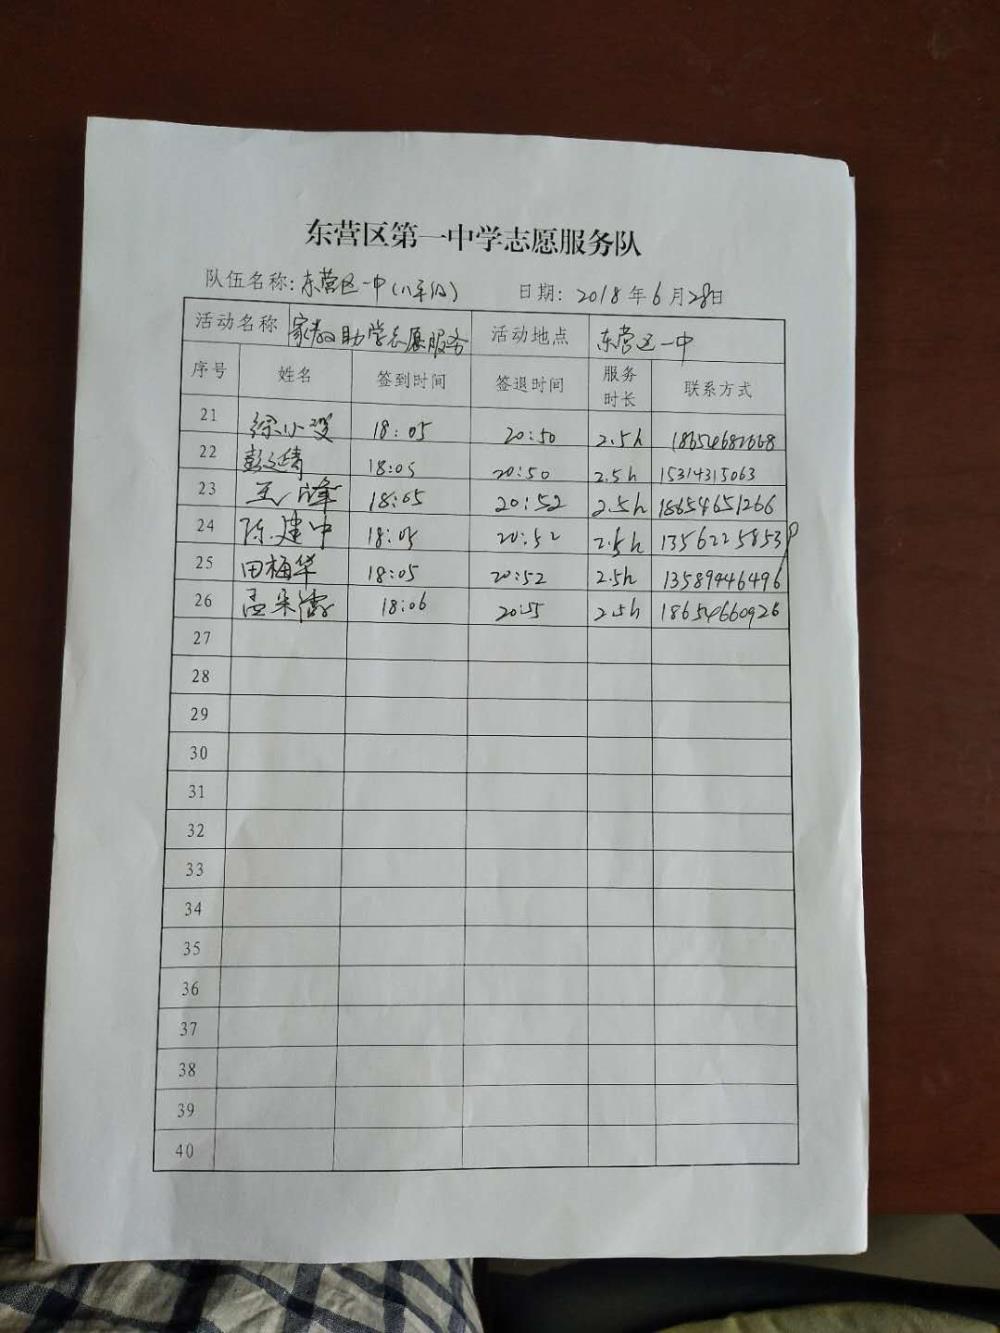 东营区第一中学志愿服务队
队伍名称：东营区一中（八年级） 日期：2018年6月28日
活动名称 家教助学志愿服务 活动地点 东营区一中
序号 姓名 签到时间 签退时间 服务时长 联系方式
21 徐小 18:05 20:50 2.5h 18654682668
22 彭文婧 18:05 20:50 2.5h 15314315063
23 王峰 18:05 20:52 2.5h 18654651266
24 陈建中 18:05 20:52 2.5h 13562258539
25 田梅华 18:05 20:52 2.5h 13589446496
26 孟 18:06 20:55 2.5h 18654660926
27
28
29
30
31
32
33
34
35
36
37
38
39
40